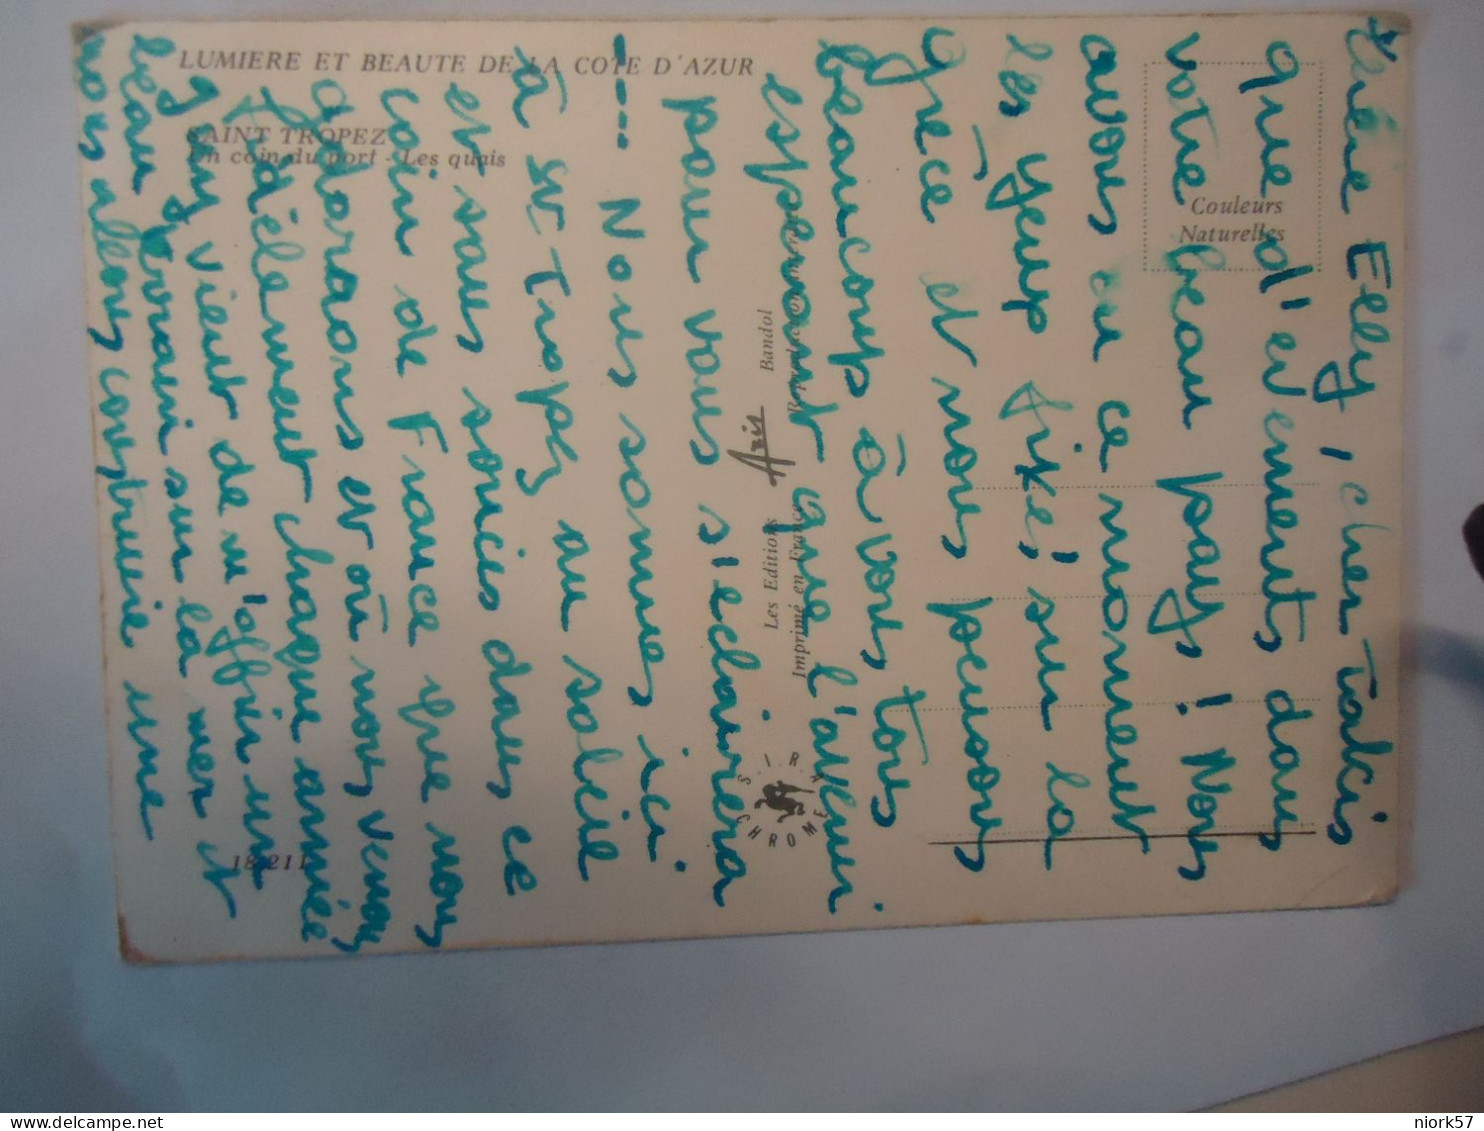 LUMIERE ET BEAUTE DE LA COTE D'AZUR
SAINT TROPEZ
Un coin du port - Les quais
Couleurs
Naturelles
Les Editions Aris Bandol
Imprimé en France
SIRACHROME
18.211
Chère Elly, cher Takis
que d'evements dans
votre beau pays! Nous
avons en ce moment
les yeux fixés sur la
Grèce et nous pensons
beaucoup à vous tous
esperant que l'avenir
pour vous s'eclairera
---- Nous sommes ici
à St Tropez au soleil
et sans soucis dans ce
coin de France que nous
adorons et où nous venons
fidèlement chaque année
Guy vient de m'offrir un
beau terrain sur la mer et
nous allons construire une
niork57